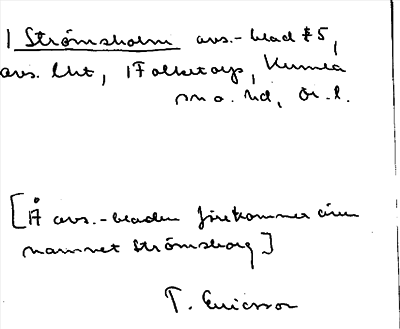 | Strömsholm avs.-blad £5,
avs. lht, i Folketorp, Kumla
sn o. hd, Ör. l.
[Å avs.-bladen förekommer även
namnet Strömsborg]
T. Ericsson